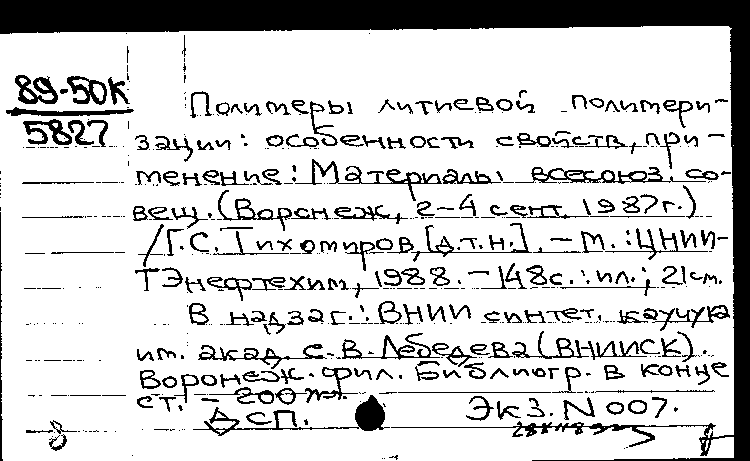 89-50К
5827
Полимеры литиевой полимери-
зации: особенности свойств, при-
менение: Материалы всесоюз. со-
вещ. (Воронеж, 2-4 сент. 1987г.)
/Г.С. Тихомиров, [д.т.н.]. - М.: ЦНИИ-
ТЭнефтехим, 1988. - 148с.: ил.; 21см.
В надзаг.: ВНИИ синтет. каучука
им. акад. С.В. Лебедева (ВНИИСК).
Воронеж. фил. Библиогр. в конце
ст. - 200
ДСП. Экз. N 007.